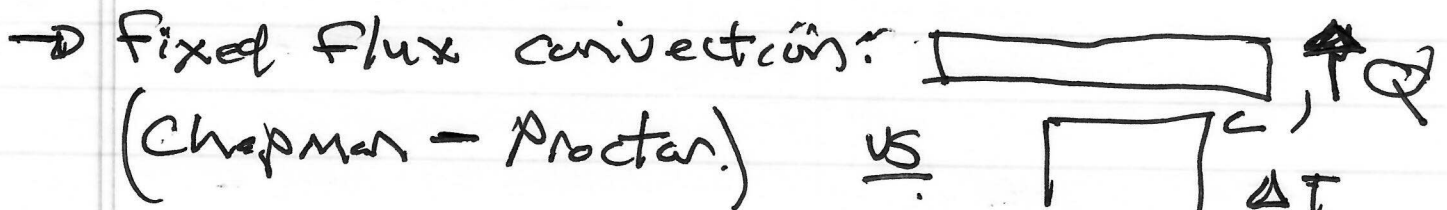 → Fixed Flux convection: ↑ Q
(Chapman - Proctor.) vs. ΔT